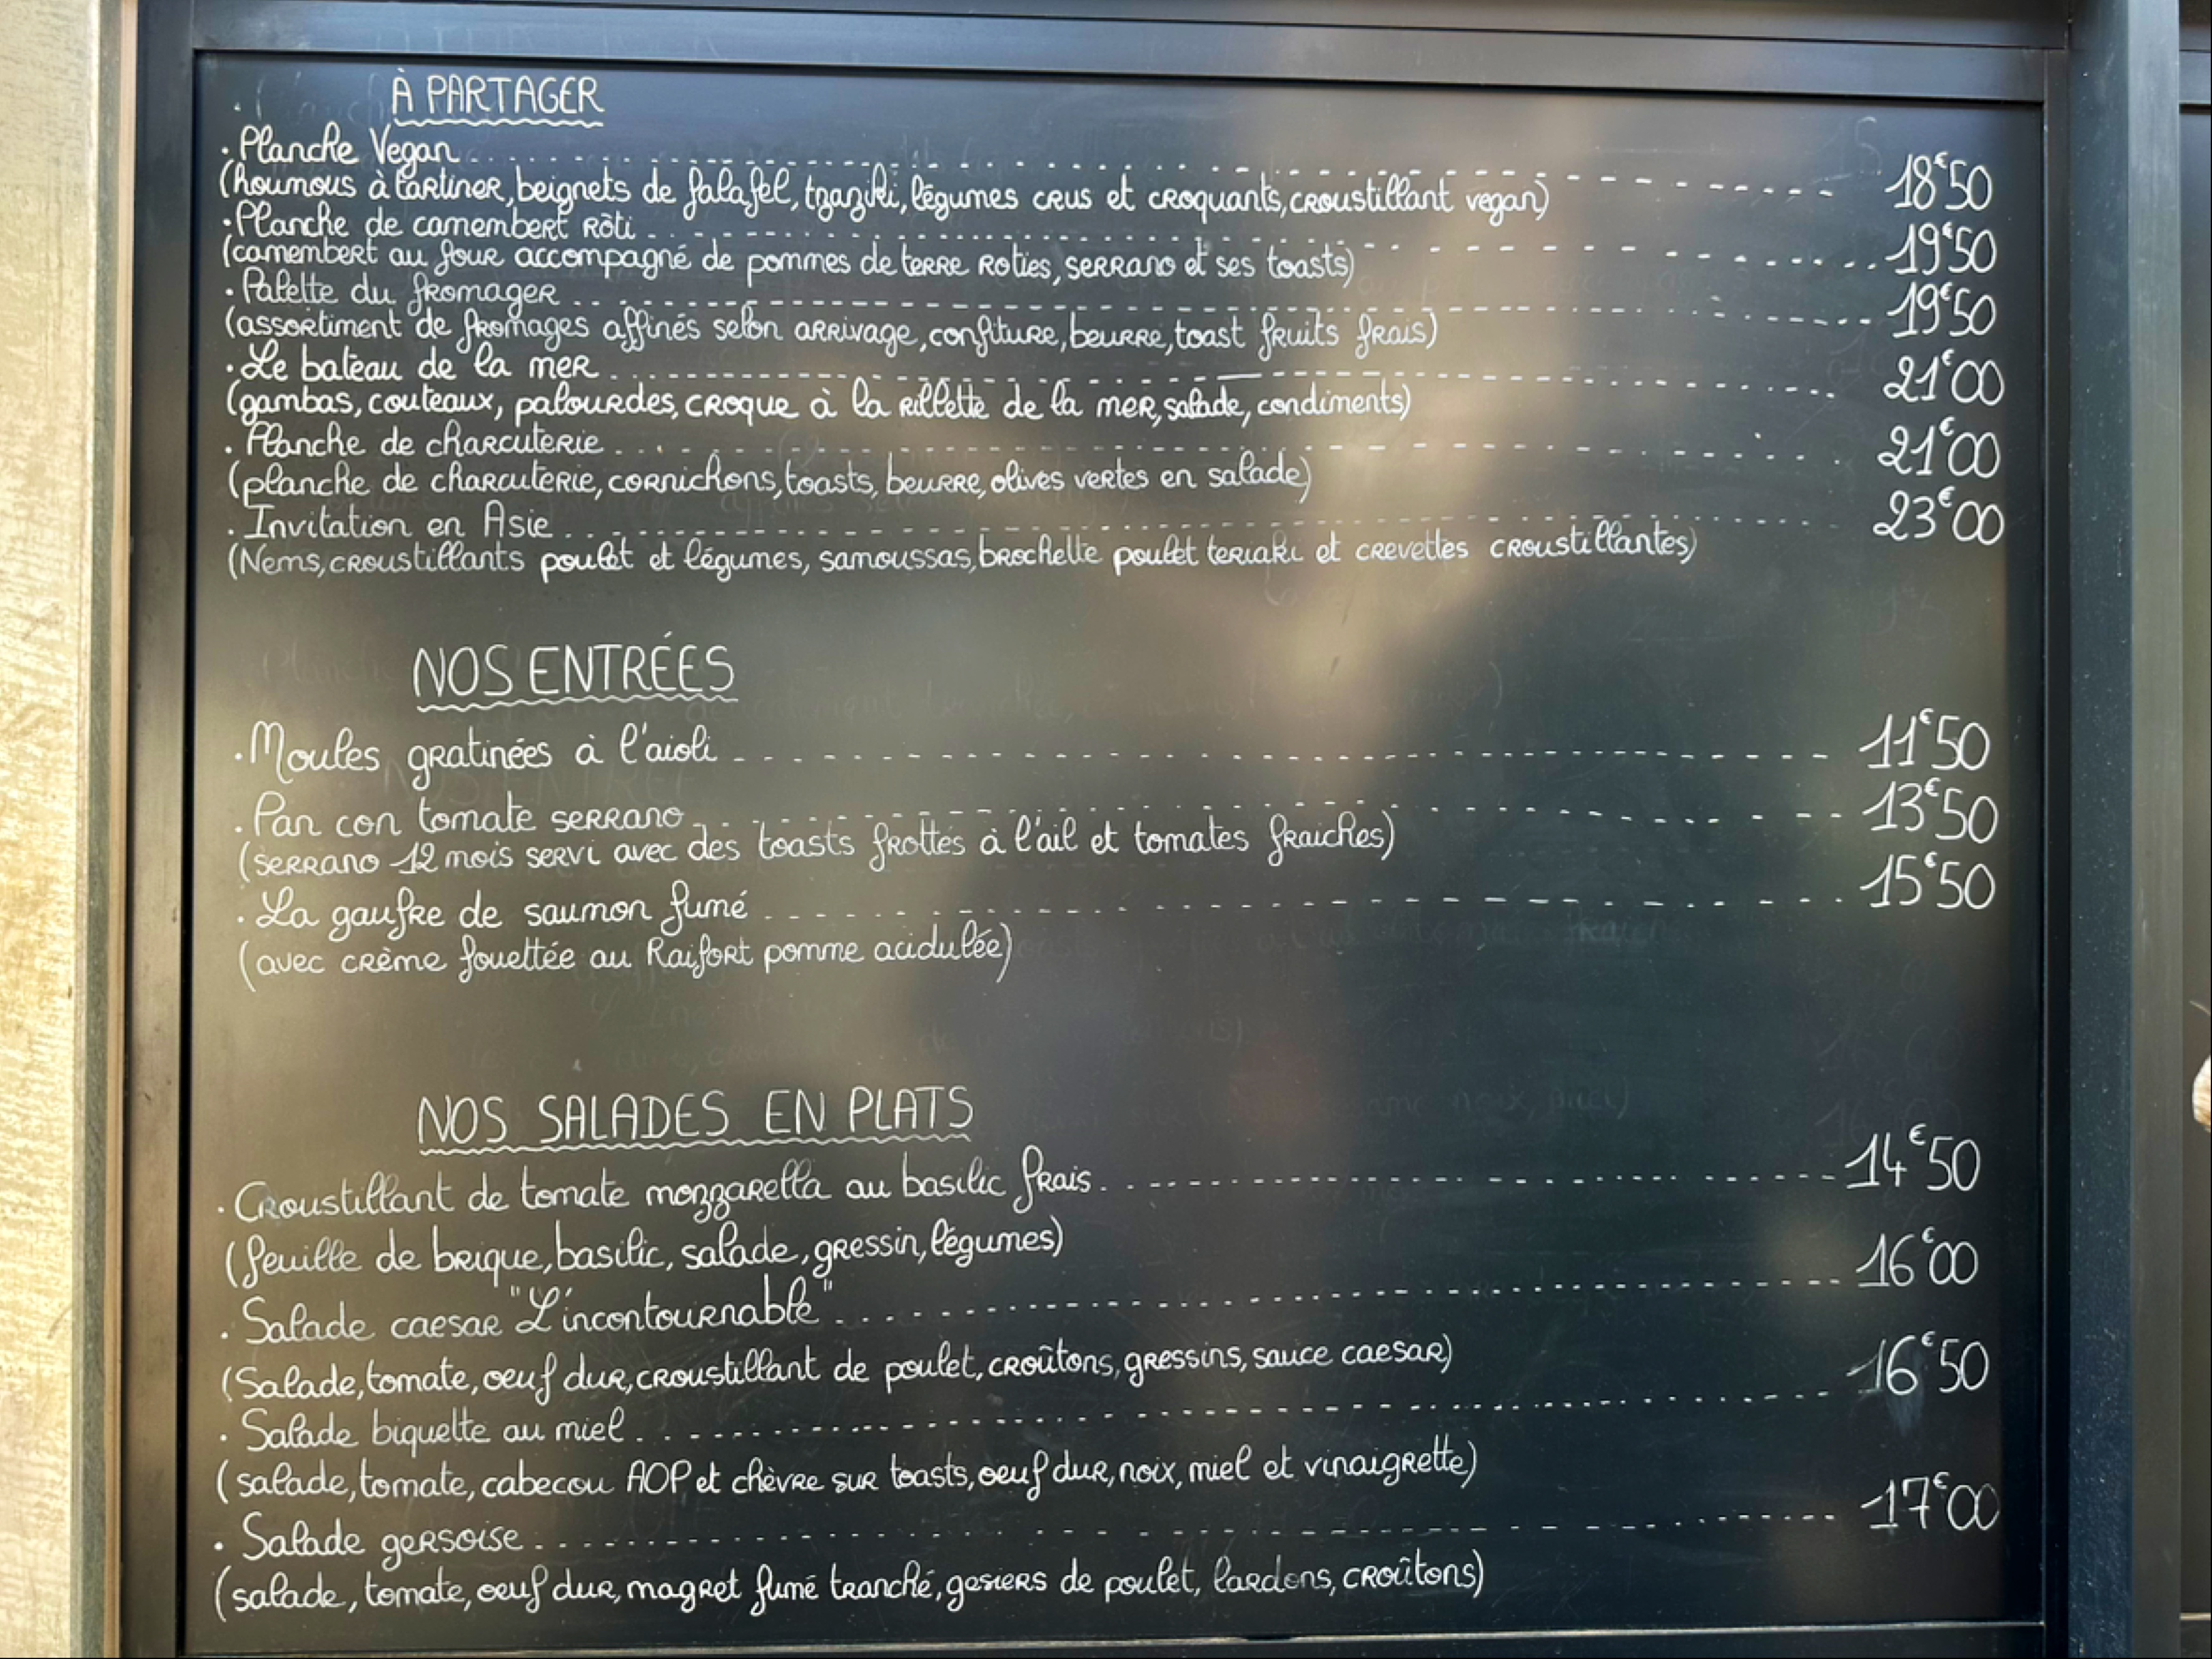 À PARTAGER
. Planche Vegan 18€50
(houmous à tartiner, beignets de falafel, tzaziki, légumes crus et croquants, croustillant vegan)
. Planche de camembert Rôti 19€50
(camembert au four accompagné de pommes de terre Roties, serrano et ses toasts)
. Palette du fromager 19€50
(assortiment de fromages affinés selon arrivage, confiture, beurre, toast fruits frais)
. Le bateau de la mer 21€00
(gambas, couteaux, palourdes, croque à la rillette de la mer, salade, condiments)
. Planche de charcuterie 21€00
(planche de charcuterie, cornichons, toasts, beurre, olives vertes en salade)
. Invitation en Asie 23€00
(Nems, croustillants poulet et légumes, samoussas, brochette poulet teriaki et crevettes croustillantes)
NOS ENTRÉES
. Moules gratinées à l'aioli 11€50
. Pan con tomate serrano 13€50
(serrano 12 mois servi avec des toasts frottés à l'ail et tomates fraiches)
. La gaufre de saumon fumé 15€50
(avec crème fouettée au Raifort pomme acidulée)
NOS SALADES EN PLATS
. Croustillant de tomate mozzarella au basilic frais 14€50
(feuille de brique, basilic, salade, gressin, légumes)
. Salade caesar "L'incontournable" 16€00
(Salade, tomate, oeuf dur, croustillant de poulet, croûtons, gressins, sauce caesar)
. Salade biquette au miel 16€50
(salade, tomate, cabecou AOP et chèvre sur toasts, oeuf dur, noix, miel et vinaigrette)
. Salade gersoise 17€00
(salade, tomate, oeuf dur, magret fumé tranché, gesiers de poulet, lardons, croûtons)